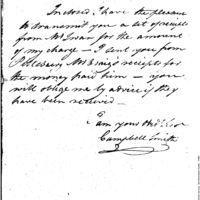 Inclosed, I have the pleasure
to transmit you a set of receipts
from Mr for the amount
of my charge — I sent you from
Mr Craig's receipt for
the money paid him — you
will oblige me by advice if they
have been received —
I am your
Campbell Smith